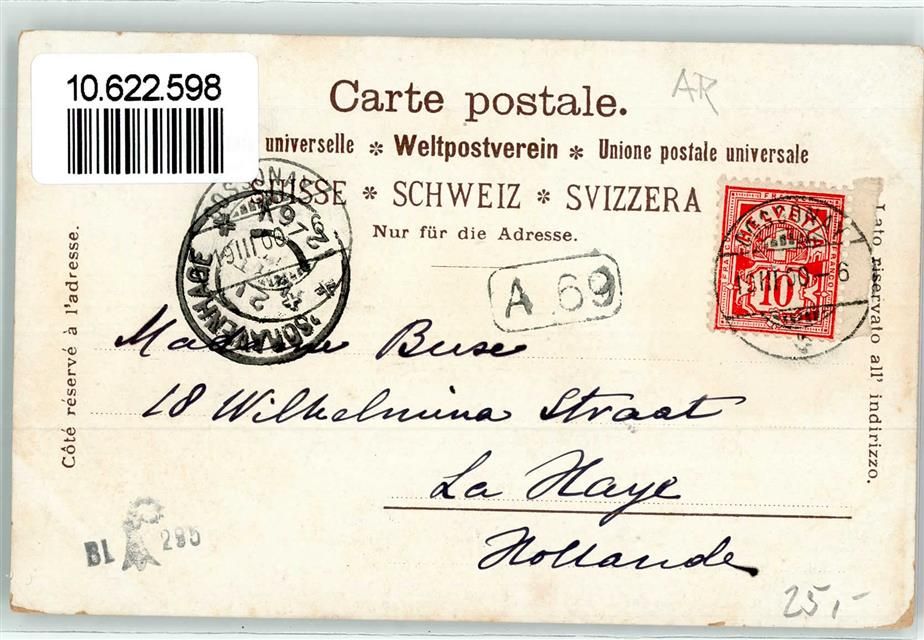 10.622.598
Carte postale.
AR
universelle * Weltpostverein * Unione postale universale
SUISSE * SCHWEIZ * SVIZZERA
Nur für die Adresse.
Côté réservé à l'adresse.
Lato riservato all' indirizzo.
'S GRAVENHAGE
HELVETIA
FRANCO
10
A 69
Madame Buse
18 Wilhelmina Straat
La Haye
Hollande
BL 295
25,-